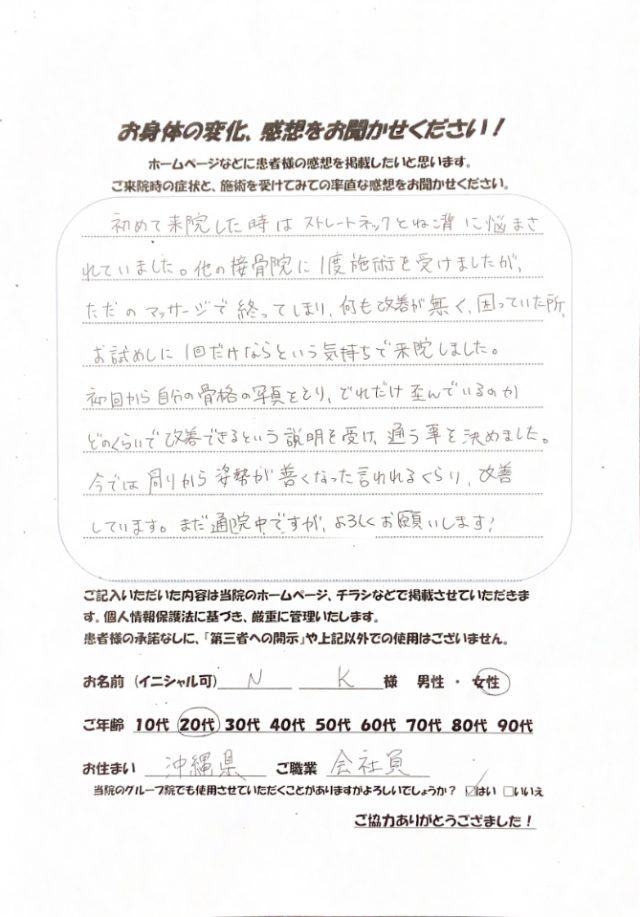 お身体の変化、感想をお聞かせください！
ホームページなどに患者様の感想を掲載したいと思います。
ご来院時の症状と、施術を受けてみての率直な感想をお聞かせください。
初めて来院した時は ストレートネックとねこ背 に悩まさ
れていました。他の接骨院に 1度施術を受けましたが、
ただの マッサージで 終ってしまい、何も改善が無く、困っていた所、
お試めしに 1回だけならという気持ちで来院しました。
初回から自分の骨格の写真をとり、どれだけ歪んでいるのか
どのくらいで改善できるという説明を受け、通う事を決めました。
今では 周りから 姿勢が 善くなった言われれるくらい、改善
しています。まだ通院中ですが、よろしくお願いします！
ご記入いただいた内容は当院のホームページ、チラシなどで掲載させていただきま
す。個人情報保護法に基づき、厳重に管理いたします。
患者様の承諾なしに、「第三者への開示」や上記以外での使用はございません。
お名前（イニシャル可） N K 様 男性 ・ 女性
ご年齢 10代 20代 30代 40代 50代 60代 70代 80代 90代
お住まい 沖縄県 ご職業 会社員
当院のグループ院でも使用させていただくことがありますがよろしいでしょうか？ ☑はい □いいえ
ご協力ありがとうござました！